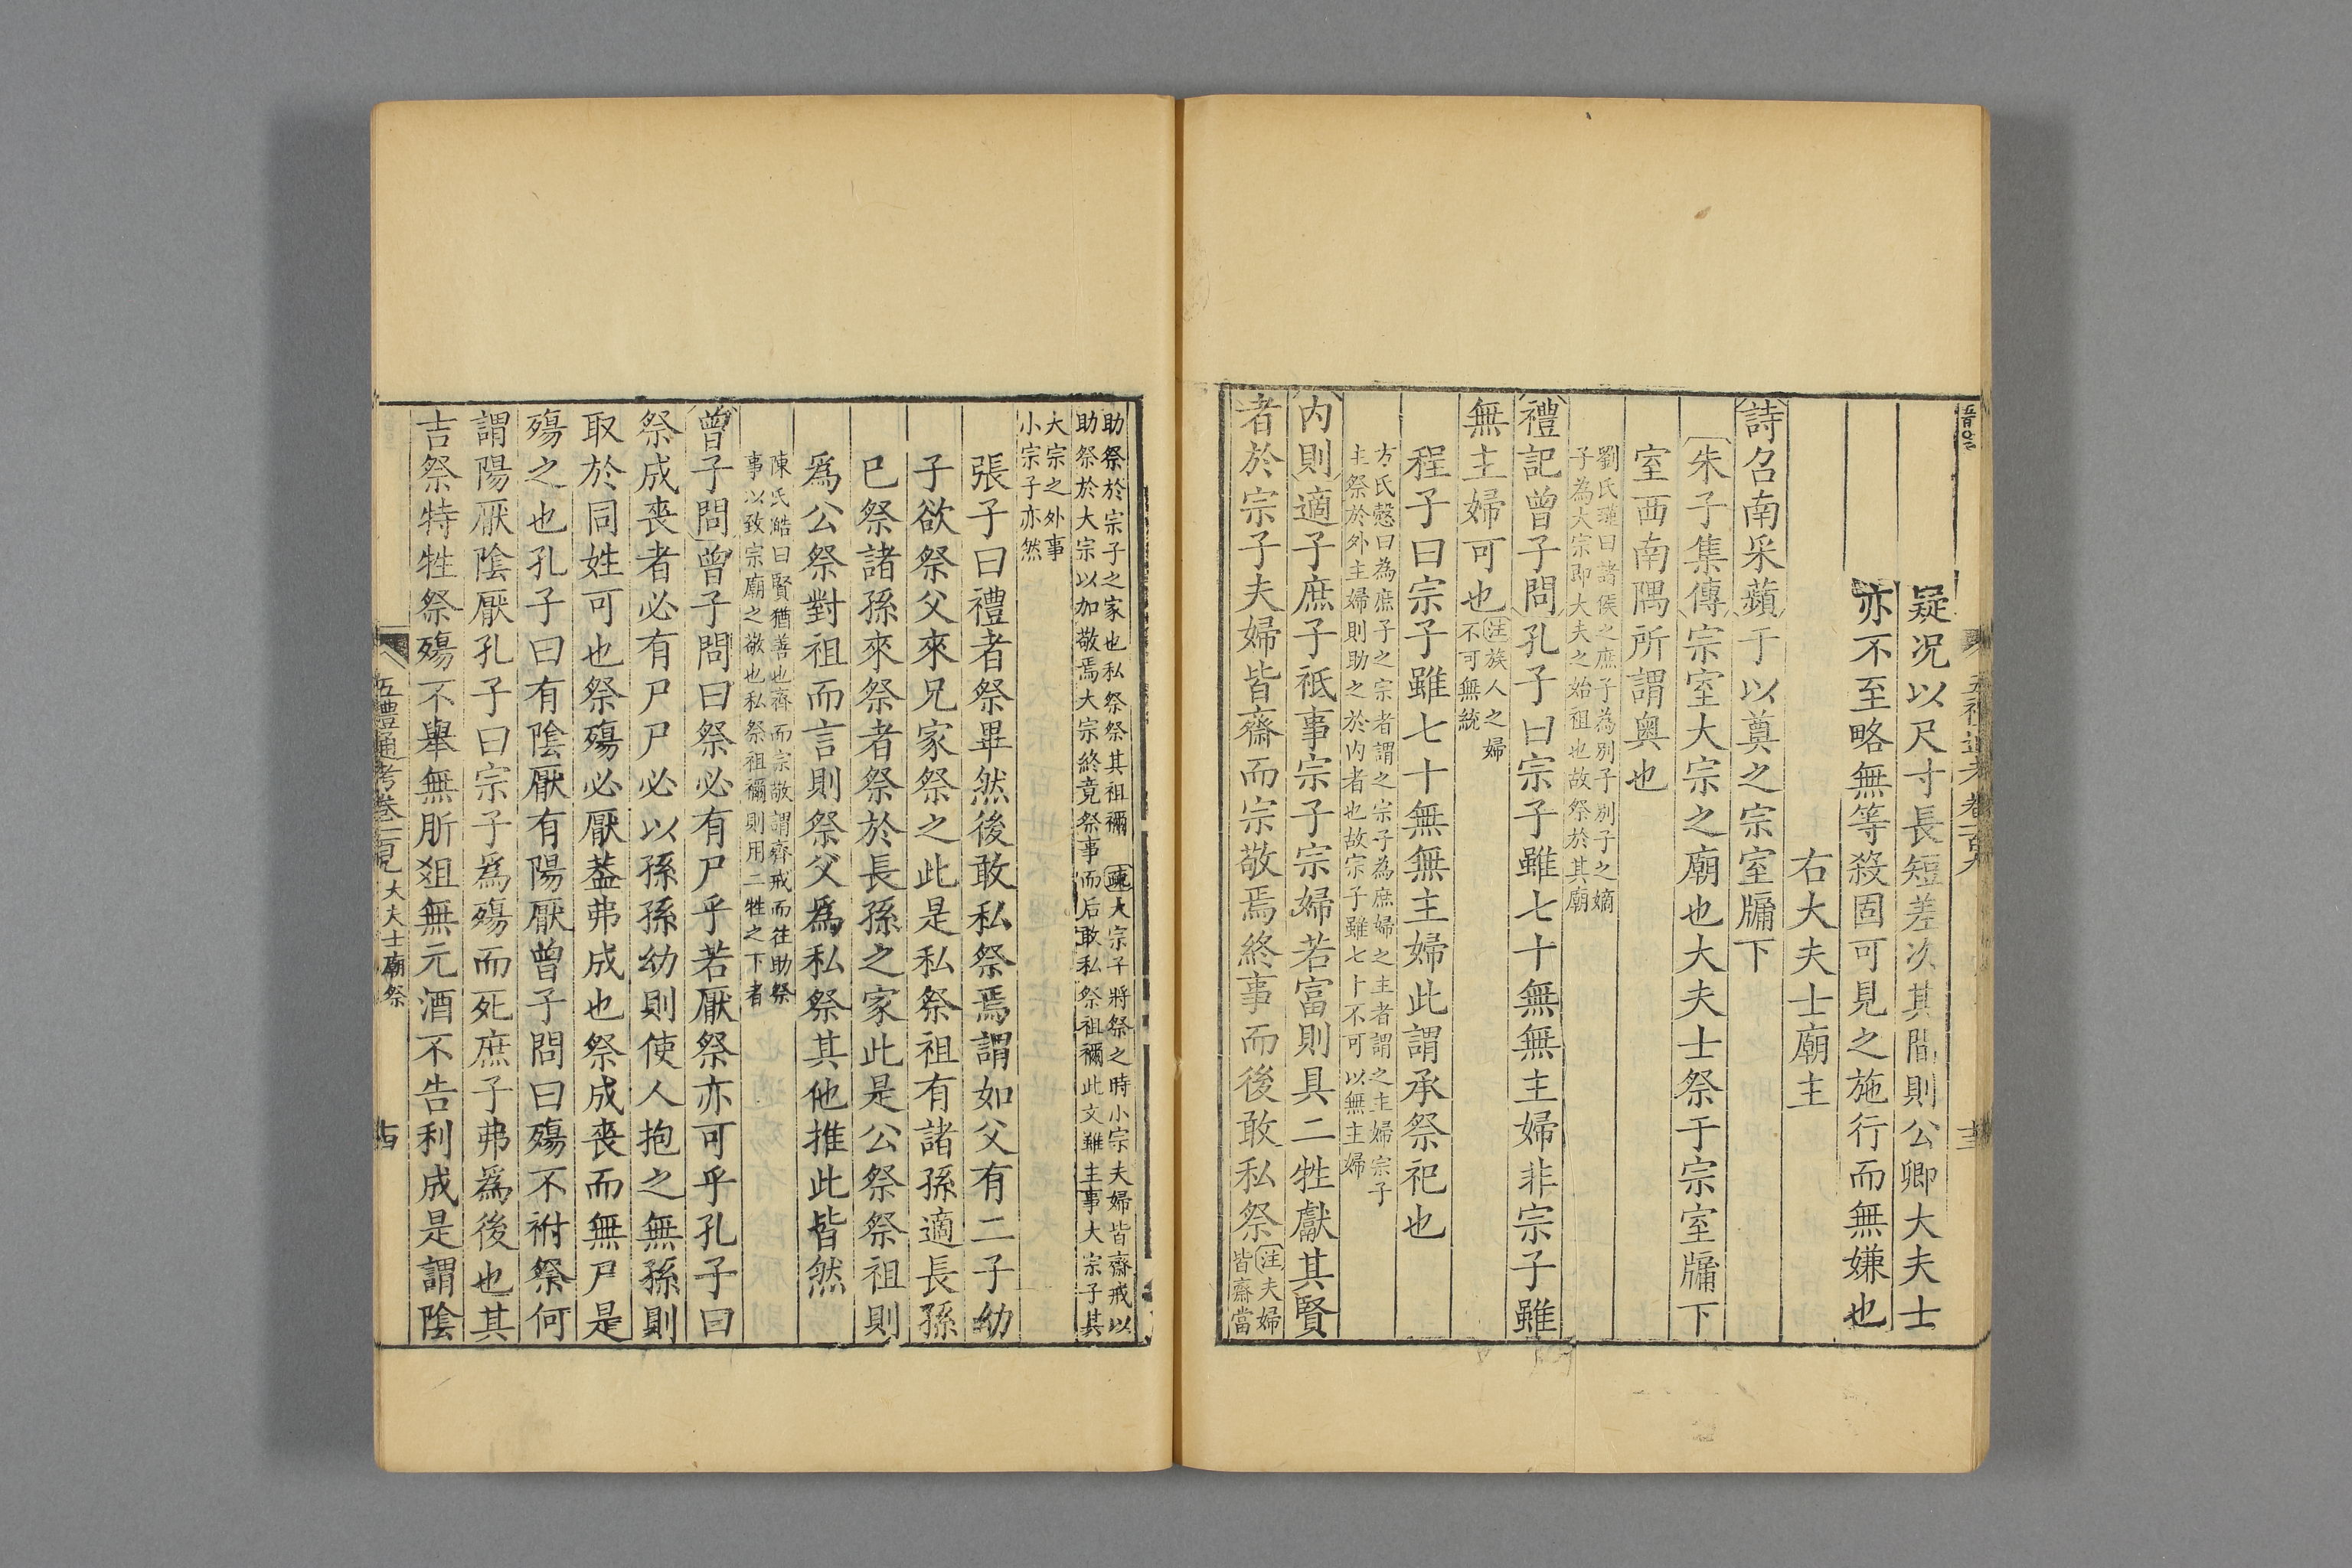 疑况以尺寸長短差次其間則公卿大夫士
亦不至略無等殺固可見之施行而無嫌也
右大夫士廟主
詩召南采蘋于以奠之宗室牖下
朱子集傳宗室大宗之廟也大夫士祭于宗室牖下
室西南隅所謂奥也
劉氏瑾曰諸侯之庶子為別子別子之嫡
子為大宗即大夫之始祖也故祭於其廟
禮記曾子問孔子曰宗子雖七十無無主婦非宗子雖
無主婦可也注族人之婦
不可無統
程子曰宗子雖七十無無主婦此謂承祭祀也
方氏慤曰為庶子之宗者謂之宗子為庶婦之主者謂之主婦宗子
主祭於外主婦則助之於内者也故宗子雖七十不可以無主婦
内則適子庶子祇事宗子宗婦若富則具二牲獻其賢
者於宗子夫婦皆齋而宗敬焉終事而後敢私祭注夫婦
皆齋當
助祭於宗子之家也私祭祭其祖禰 疏大宗子將祭之時小宗夫婦皆齋戒以
助祭於大宗以加敬焉大宗終竟祭事而后敢私祭祖禰此文雖主事大宗子其
大宗之外事
小宗子亦然
張子曰禮者祭畢然後敢私祭焉謂如父有二子幼
子欲祭父來兄家祭之此是私祭祖有諸孫適長孫
已祭諸孫來祭者祭於長孫之家此是公祭祭祖則
爲公祭對祖而言則祭父爲私祭其他推此皆然
陳氏澔曰賢猶善也齊而宗敬謂齊戒而往助祭
事以致宗廟之敬也私祭祖禰則用二牲之下者
曾子問曾子問曰祭必有尸乎若厭祭亦可乎孔子曰
祭成喪者必有尸尸必以孫孫幼則使人抱之無孫則
取於同姓可也祭殤必厭葢弗成也祭成喪而無尸是
殤之也孔子曰有陰厭有陽厭曾子問曰殤不祔祭何
謂陽厭陰厭孔子曰宗子爲殤而死庶子弗爲後也其
吉祭特牲祭殤不舉無肵俎無元酒不告利成是謂陰
五禮通考卷一百九 大夫士廟祭